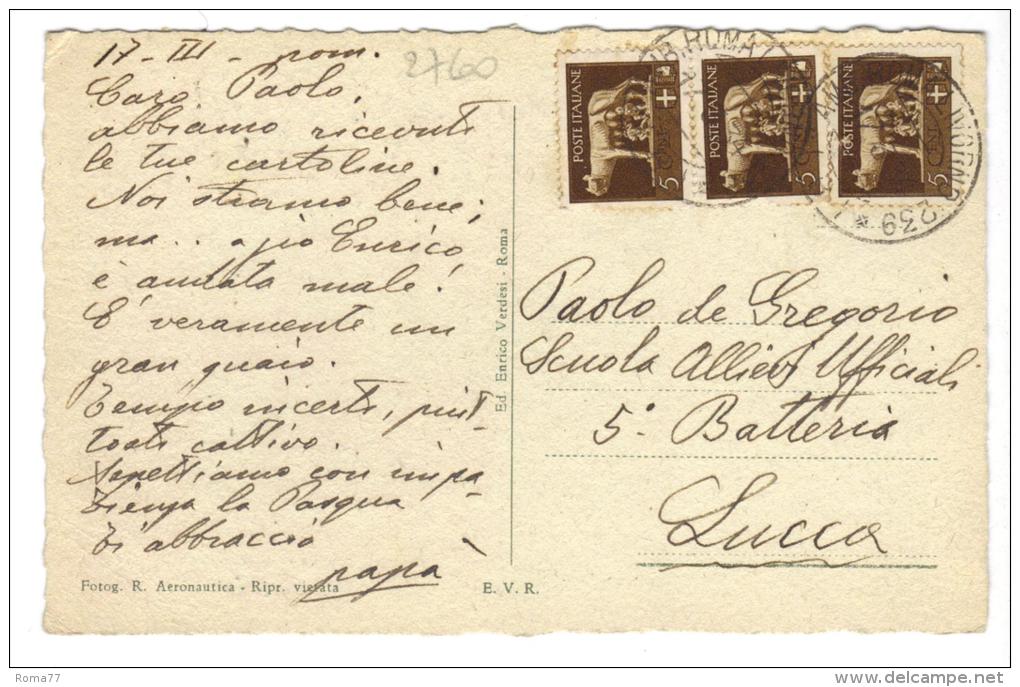 17-III- pom.
2760
Caro Paolo,
abbiamo ricevuto
le tue cartoline.
Noi stiamo bene;
ma.. a zio Enrico
è andata male!
E' veramente un
gran guaio.
Tempo incerto, piut-
tosto cattivo.
Aspettiamo con impa-
zienza la Pasqua
Ti abbraccio
papà
Fotog. R. Aeronautica - Ripr. vietata
E. V. R.
Ed. Enrico Verdesi - Roma
POSTE ITALIANE
5
CENT
POSTE ITALIANE
5
POSTE ITALIANE
5
CENT
ROMA
239
Paolo de Gregorio
Scuola Allievi Ufficiali
5ª Batteria
Lucca
Roma77
delcampe.net